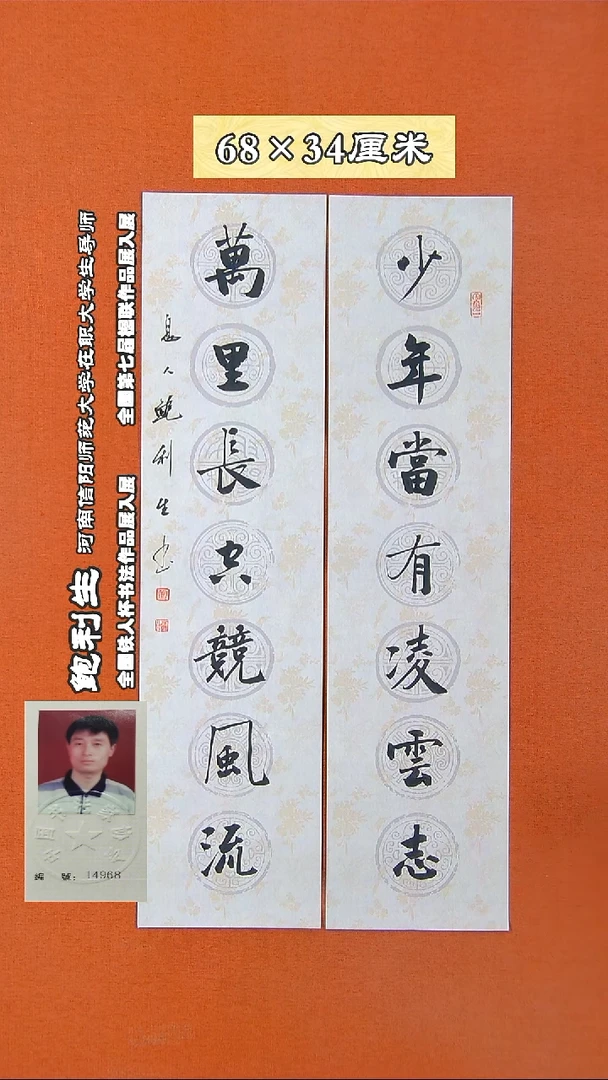 68×34厘米
少年當有凌雲志
萬里長空競風流
息人鲍利生书
鲍利生 河南信阳师范大学在职大学生导师
全國铁人杯书法作品展入展 全國第七届楹联作品展入展
编 號：14968